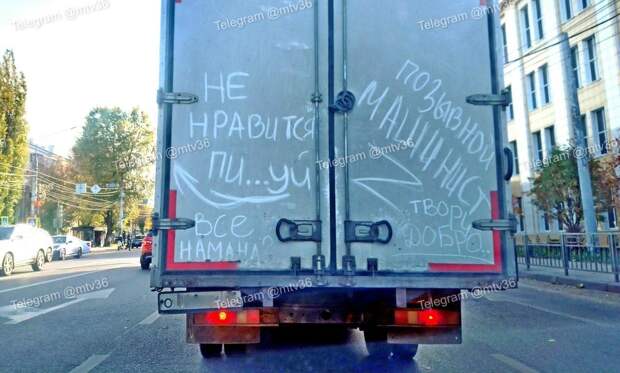 НЕ
НРАВИТСЯ
ПИ...УЙ
ВСЕ
НАМАНА?
ПОЗЫВНОЙ
МАШИНИСТ
ТВОРИ
ДОБРО.
Telegram @mtv36
Telegram @mtv36
Telegram @mtv36
Telegram @mtv36
Telegram @mtv36
Telegram @mtv36
Telegram @mtv36
Telegram @mtv36
Telegram @mtv36
Telegram @mtv36
Telegram @mtv36
Telegram @mtv36